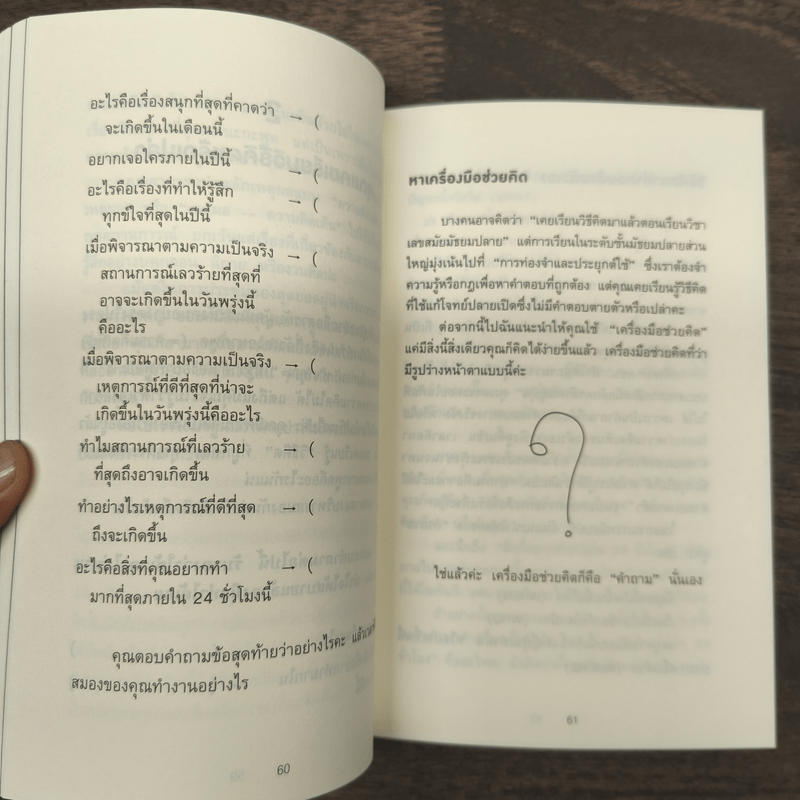 อะไรคือเรื่องสนุกที่สุดที่คาดว่า → (
จะเกิดขึ้นในเดือนนี้
อยากเจอใครภายในปีนี้ → (
อะไรคือเรื่องที่ทำให้รู้สึก → (
ทุกข์ใจที่สุดในปีนี้
เมื่อพิจารณาตามความเป็นจริง → (
สถานการณ์เลวร้ายที่สุดที่
อาจจะเกิดขึ้นในวันพรุ่งนี้
คืออะไร
เมื่อพิจารณาตามความเป็นจริง → (
เหตุการณ์ที่ดีที่สุดที่น่าจะ
เกิดขึ้นในวันพรุ่งนี้คืออะไร
ทำไมสถานการณ์ที่เลวร้าย → (
ที่สุดถึงอาจเกิดขึ้น
ทำอย่างไรเหตุการณ์ที่ดีที่สุด → (
ถึงจะเกิดขึ้น
อะไรคือสิ่งที่คุณอยากทำ → (
มากที่สุดภายใน 24 ชั่วโมงนี้
คุณตอบคำถามข้อสุดท้ายว่าอย่างไรคะ
สมองของคุณทำงานอย่างไร
60
หาเครื่องมือช่วยคิด
บางคนอาจคิดว่า "เคยเรียนวิธีคิดมาแล้วตอนเรียนวิชา
เลขสมัยมัธยมปลาย" แต่การเรียนในระดับชั้นมัธยมปลายส่วน
ใหญ่มุ่งเน้นไปที่ "การท่องจำและประยุกต์ใช้" ซึ่งเราต้องจำ
ความรู้หรือกฎเพื่อหาคำตอบที่ถูกต้อง แต่คุณเคยเรียนรู้วิธีคิด
ที่ใช้แก้โจทย์ปลายเปิดซึ่งไม่มีคำตอบตายตัวหรือเปล่าคะ
ต่อจากนี้ไปฉันแนะนำให้คุณใช้ "เครื่องมือช่วยคิด"
แค่มีสิ่งนี้สิ่งเดียวคุณก็คิดได้ง่ายขึ้นแล้ว เครื่องมือช่วยคิดที่ว่า
มีรูปร่างหน้าตาแบบนี้ค่ะ
?
ใช่แล้วค่ะ เครื่องมือช่วยคิดก็คือ "คำถาม" นั่นเอง
61